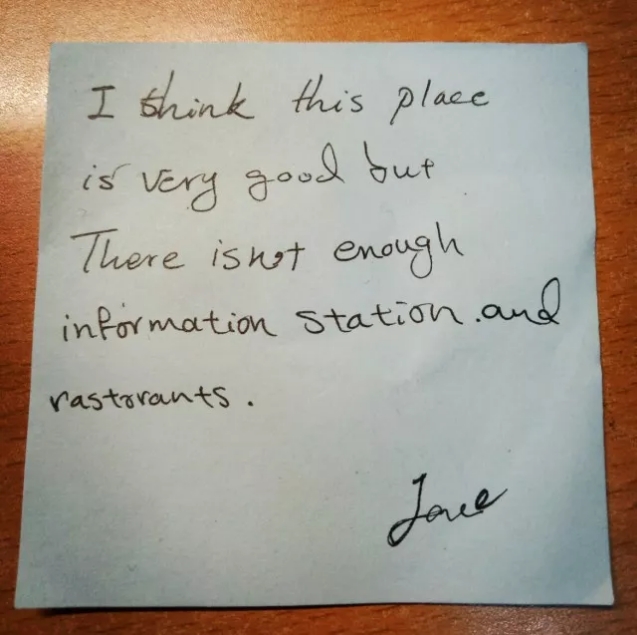 I think this place
is very good but
There isnot enough
information station.and
rastorants.